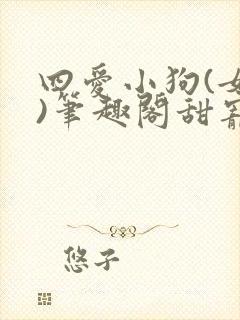 四爱小狗(女
)笔趣阁甜宠
悠子